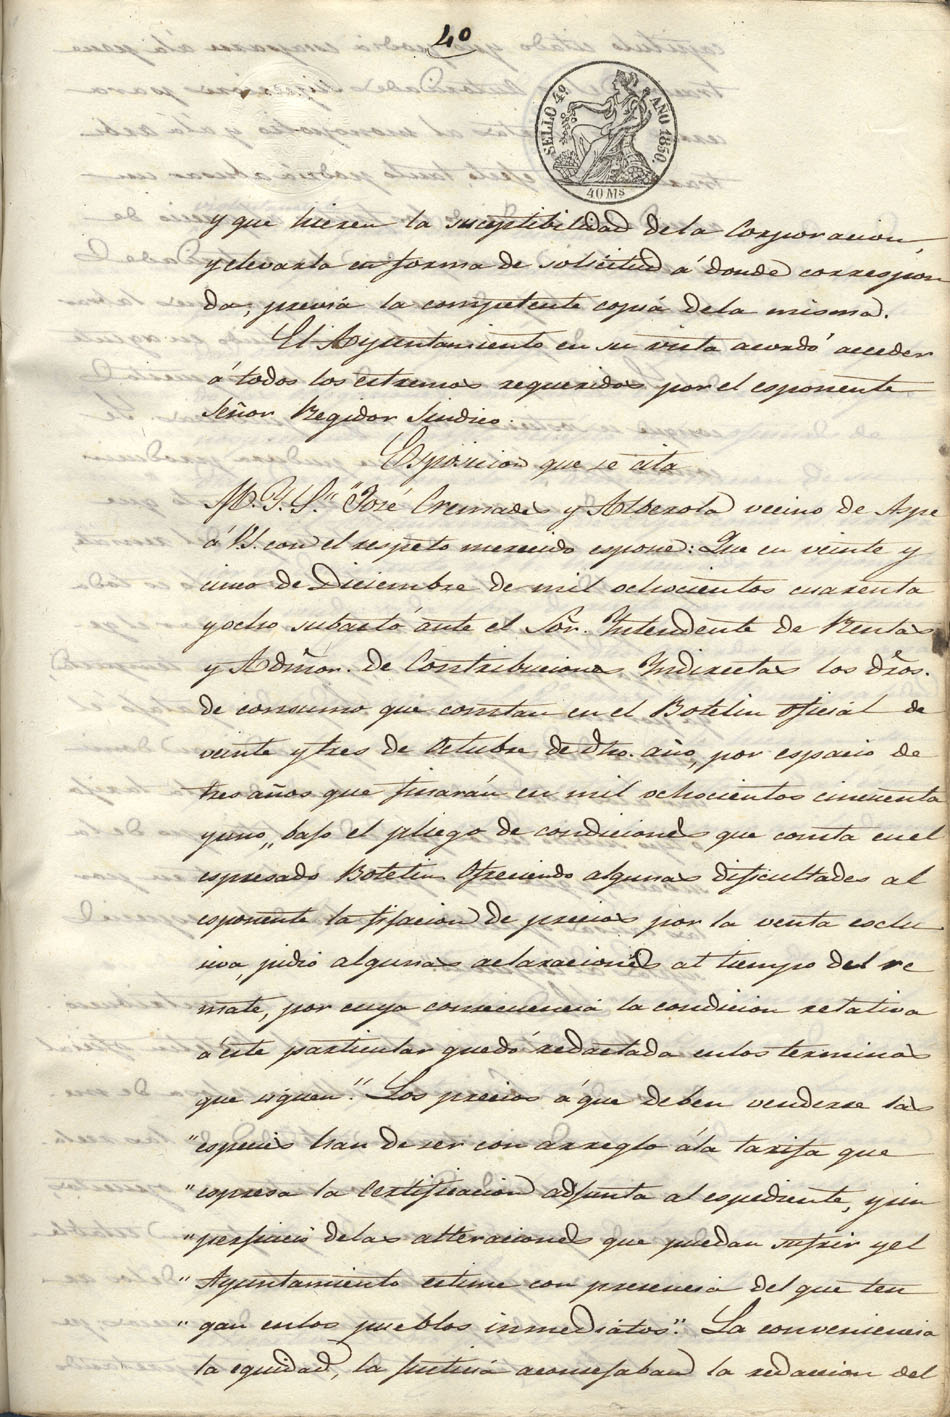 40
SELLO 4º AÑO 1850.
40 Ms
y que hieren la suceptibilidad de la Corporacion
y elevarla en forma de solicitud á donde correspon
da, previa la competente copia de la misma.
El Ayuntamiento en su vista acordó acceder
á todos los estremos requeridos por el esponente
Señor Regidor Sindico.
Esposicion que se cita
M. Y. S. "José Cremades y Alberola vecino de Aspe
á V.S. con el respeto merecido espone: Que en veinte y
cinco de Diciembre de mil ochocientos cuarenta
y ocho subastó ante el Sor. Intendente de Rentas
y Admor. de Contribuciones Yndirectas los dros.
de consumo que constan en el Boletin oficial de
veinte y tres de Octubre de dho. año, por espacio de
tres años que finarán en mil ochocientos cincuenta
y uno, bajo el pliego de condiciones que consta en el
espresado Boletin. Ofreciendo algunas dificultades al
esponente la fijacion de precios por la venta esclu
siva, pidió algunas aclaraciones al tiempo del re
mate, por cuya consecuencia la condicion relativa
á éste particular quedó redactada en los terminos
que siguen. "Los precios á que deben venderse las
"especies han de ser con arreglo á la tarifa que
"espresa la Certificacion adjunta al espediente, y sin
"perjuicio de las alteraciones que puedan sufrir y el
"Ayuntamiento estime con presencia del que ten
"gan en los pueblos inmediatos." La conveniencia
la equidad, la justicia aconsejaban la redaccion del